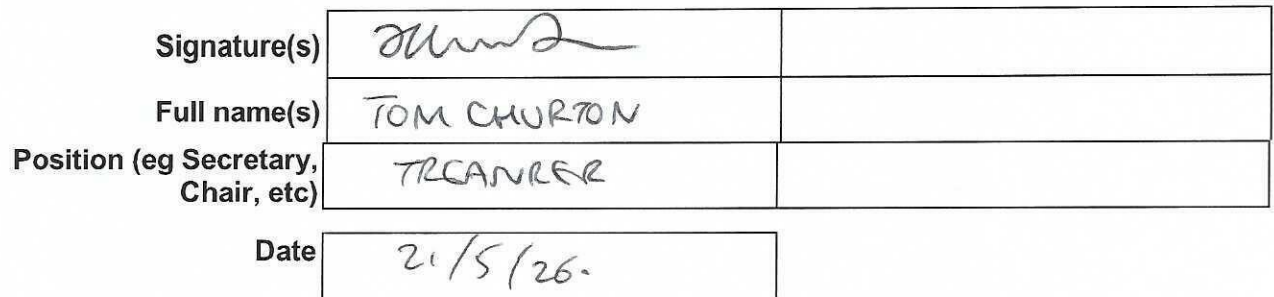 Signature(s)
Full name(s) TOM CHURTON
Position (eg Secretary,
Chair, etc) TREASURER
Date 21/5/26.